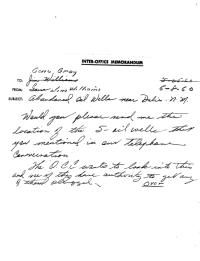 INTER-OFFICE MEMORANDUM
Gene Gray
TO: Jim Williams
FROM: 5-8-60
SUBJECT: Abandoned Oil Wells near N.M.
Would you please send me the
location of the 5-oil wells that
you mentioned in our telephone
Conversation
The O.C.C. wants to look into this
and see if they have authority to get any
of them plugged.